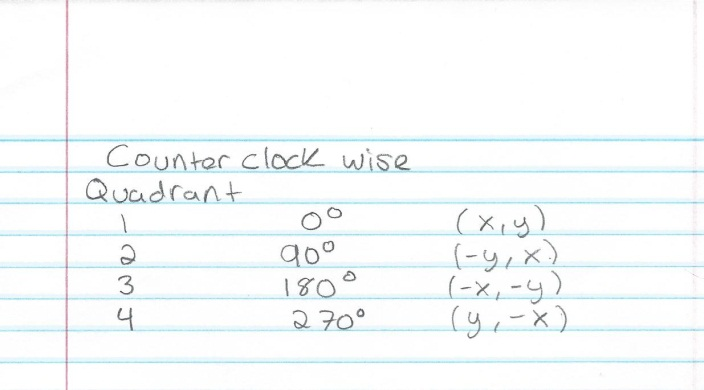 Counter clock wise
Quadrant
1 0° (x,y)
2 90° (-y, x)
3 180° (-x, -y)
4 270° (y, -x)